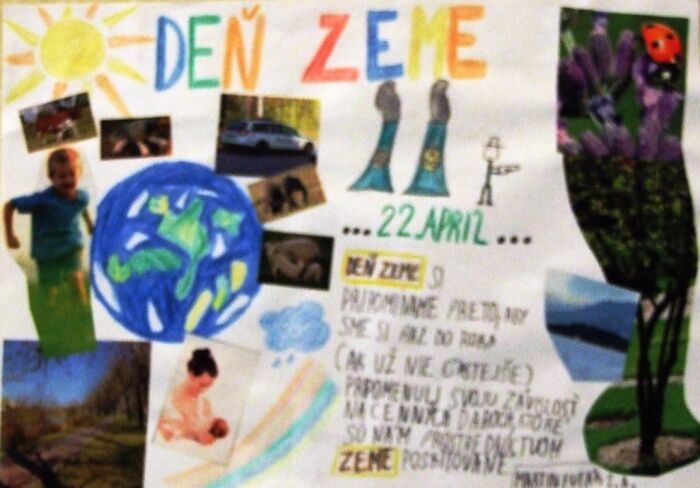 DEŇ ZEME
... 22. APRIL ...
DEŇ ZEME SI
PRIPOMÍNAME PRETO, ABY
SME SI RAZ DO ROKA
(AK UŽ NIE ČASTEJŠIE)
PRIPOMENULI SVOJU ZÁVISLOSŤ
NA CENNÝCH DAROCH, KTORÉ
SÚ NÁM PROSTREDNÍCTVOM
ZEME POSKYTOVANÉ
MARTIN